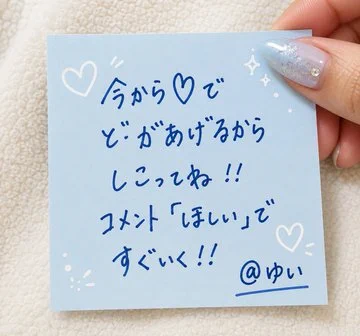 今から♡で
ど.があげるから
しこってね!!
コメント「ほしい」で
すぐいく!!
@ゆい